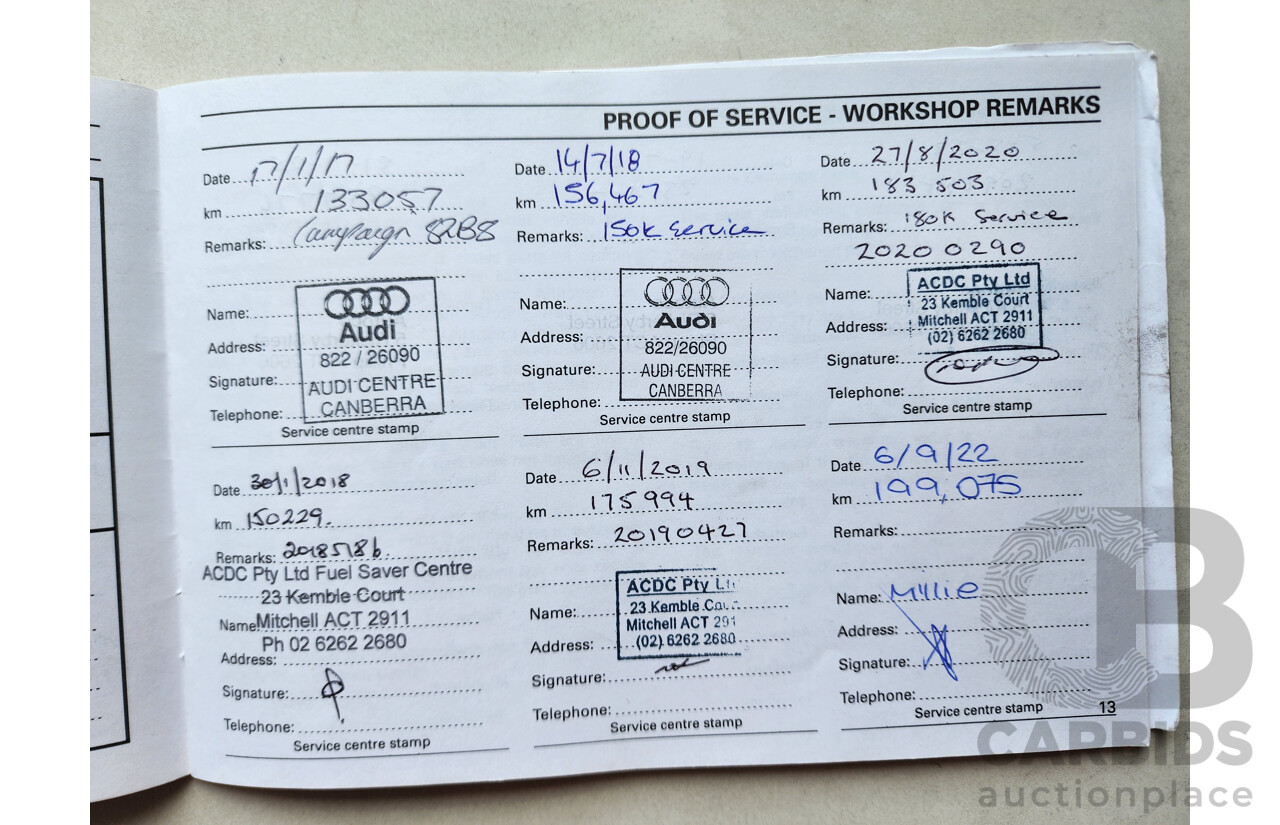 PROOF OF SERVICE - WORKSHOP REMARKS
Date 17/1/17
km 133057
Remarks: Campaign 82B8
Name:
Address:
Signature:
Telephone:
Audi
822 / 26090
AUDI CENTRE
CANBERRA
Service centre stamp
Date 14/7/18
km 156,467
Remarks: 150K Service
Name:
Address:
Signature:
Telephone:
Audi
822/26090
AUDI CENTRE
CANBERRA
Service centre stamp
Date 27/8/2020
km 183 503
Remarks: 180K Service
2020 0290
Name:
Address:
Signature:
Telephone:
ACDC Pty Ltd
23 Kemble Court
Mitchell ACT 2911
(02) 6262 2680
Service centre stamp
Date 30/1/2018
km 150229.
Remarks: 20185186.
ACDC Pty Ltd Fuel Saver Centre
23 Kemble Court
Name Mitchell ACT 2911
Ph 02 6262 2680
Address:
Signature:
Telephone:
Service centre stamp
Date 6/11/2019
km 175994
Remarks: 20190427
Name:
Address:
Signature:
Telephone:
ACDC Pty Lt
23 Kemble Cou
Mitchell ACT 291
(02) 6262 2680
Service centre stamp
Date 6/9/22
km 199,075
Remarks:
Name: Millie
Address:
Signature:
Telephone:
Service centre stamp
13
CARBIDS
auctionplace